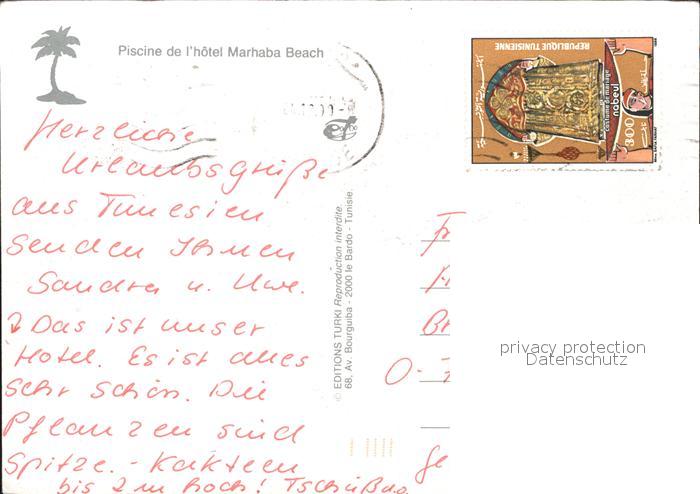 Piscine de l'hôtel Marhaba Beach
REPUBLIQUE TUNISIENNE
costume de mariage
nabeul
300
Herzliche
Urlaubsgrüße
aus Tunesien
senden Ihnen
Sandra u. Uwe.
Das ist unser
Hotel. Es ist alles
sehr schön. Die
Pflanzen sind
Spitze. - Kakteen
bis 2 m hoch! Tschüßas
© EDITIONS TURKI Reproduction interdite.
68, Av. Bourguiba - 2000 le Bardo - Tunisie.
O-
privacy protection
Datenschutz